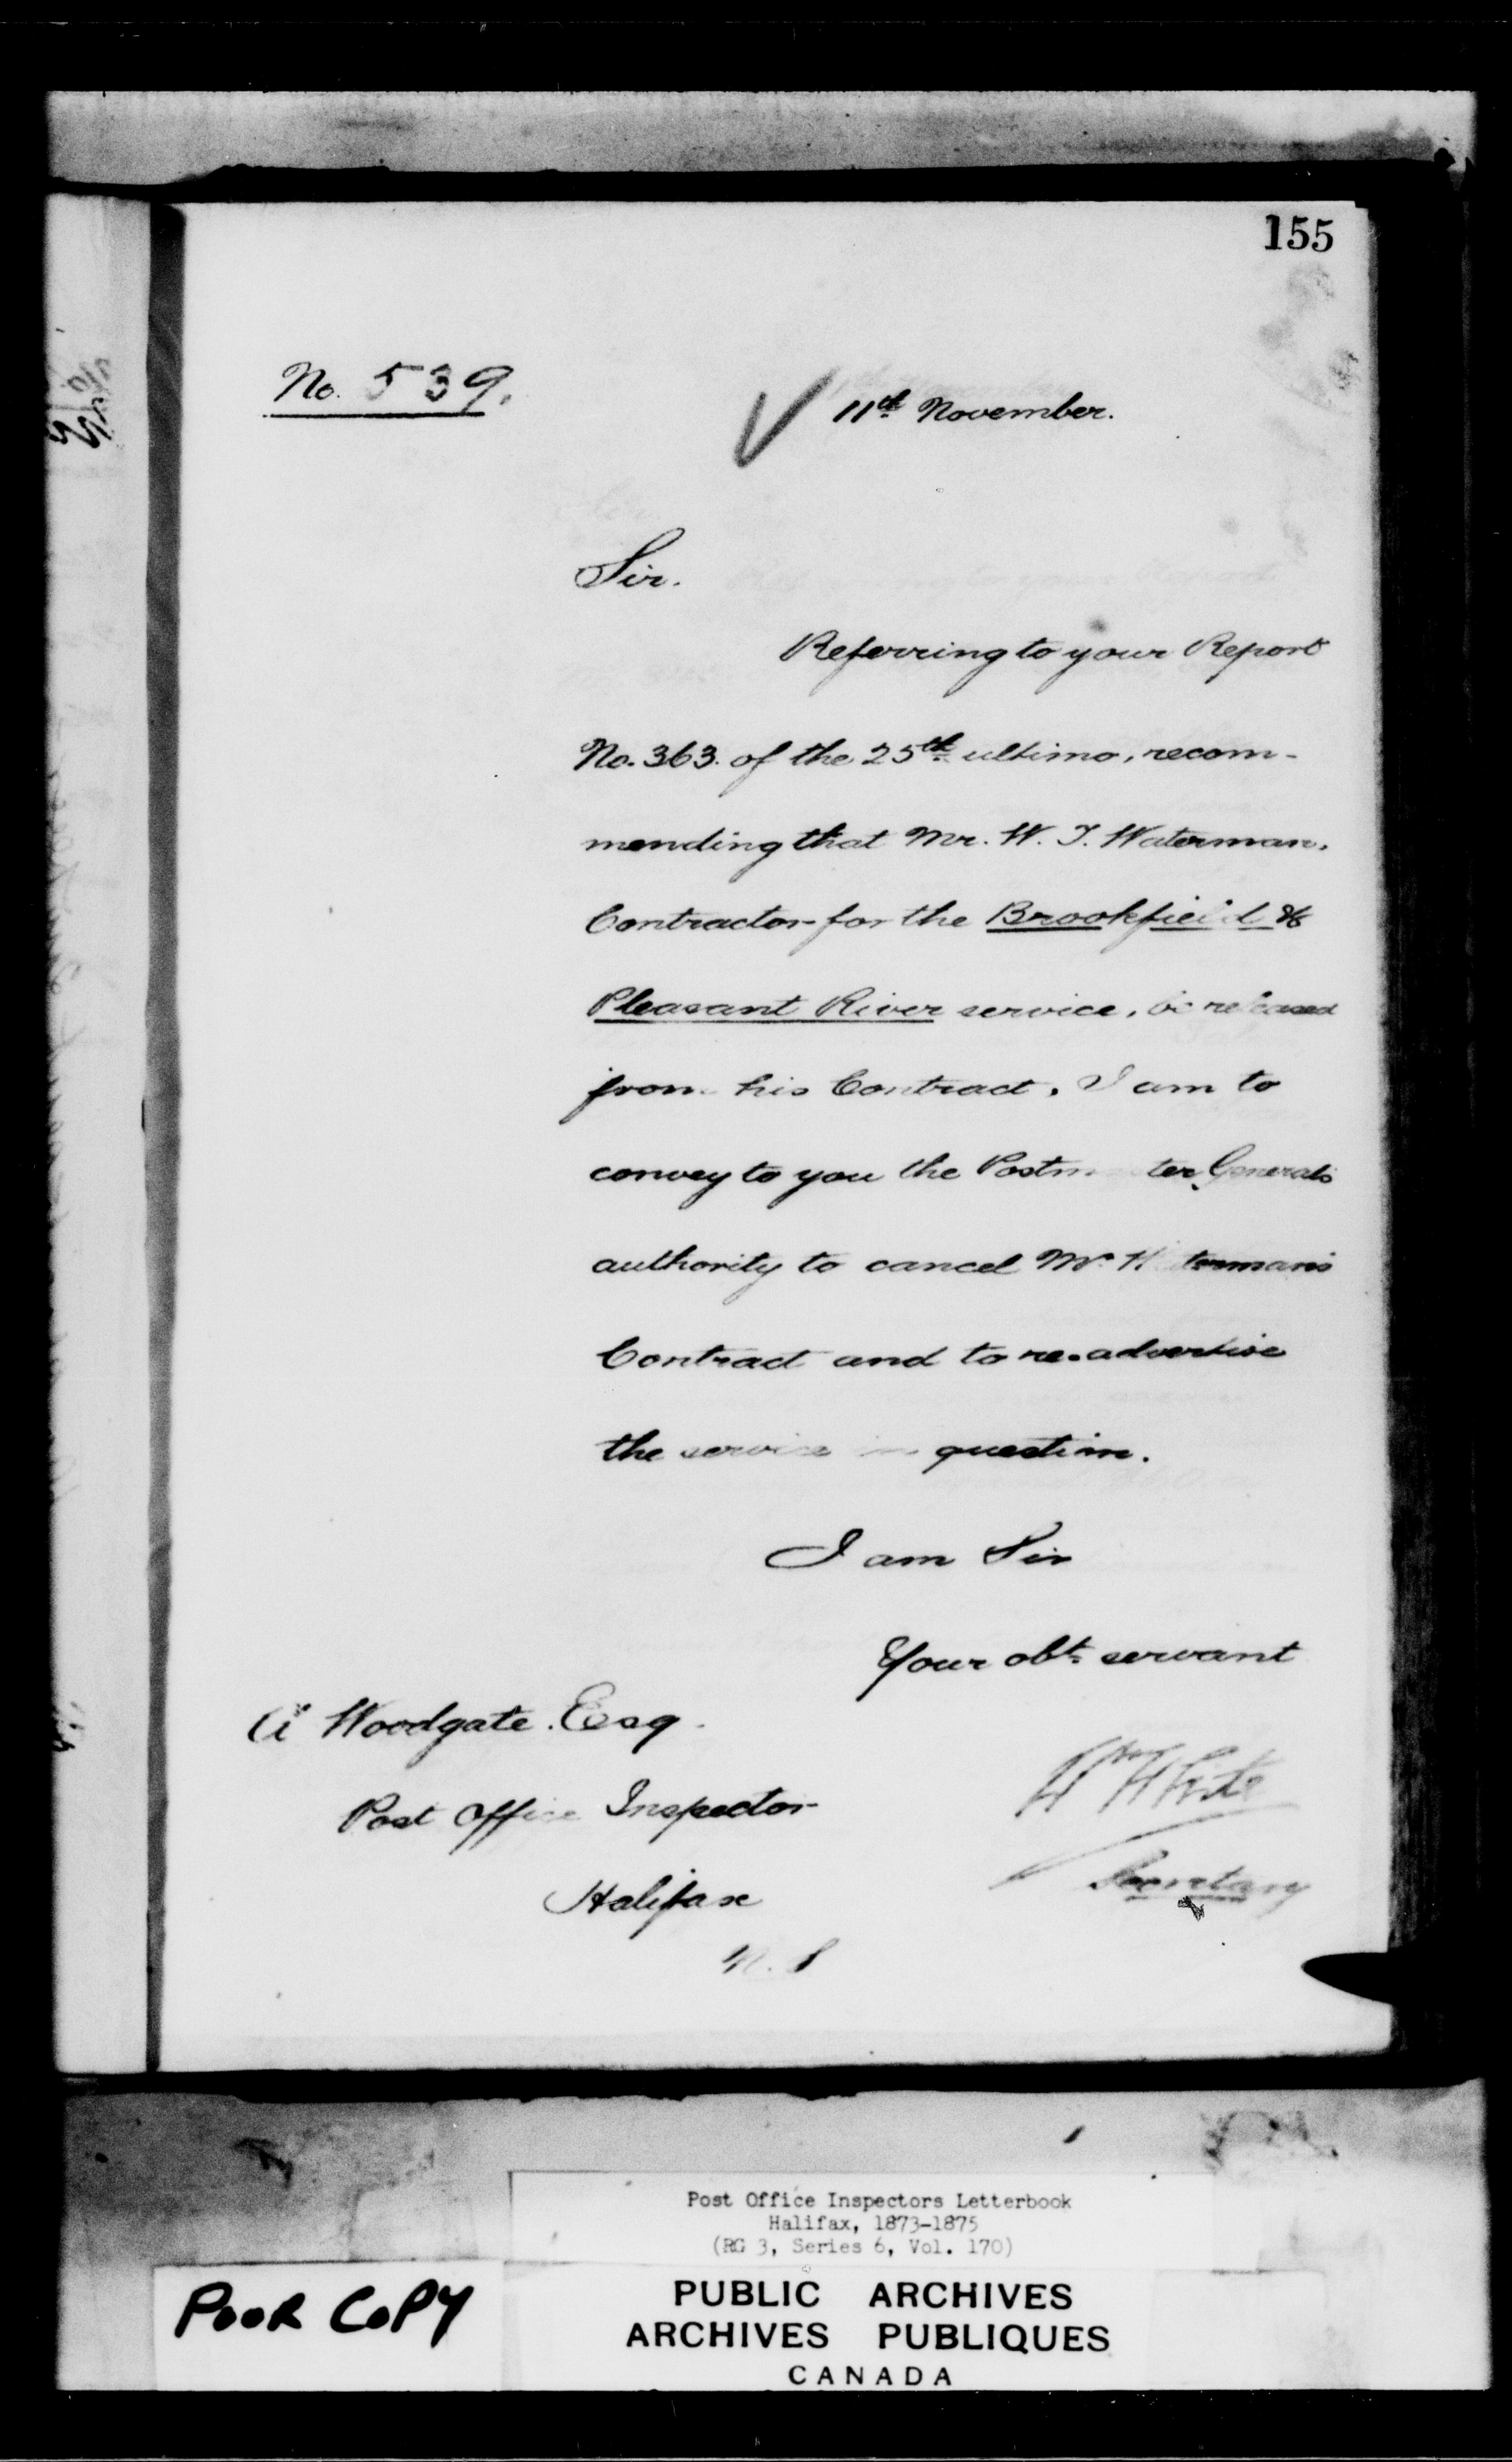 155
No. 539.
11th November.
Sir.
Referring to your Report
No. 363. of the 25th ultimo, recom-
mending that Mr. W. J. Waterman,
Contractor for the Brookfield &
Pleasant River service, be released
from his Contract, I am to
convey to you the Postmaster General's
authority to cancel Mr. Waterman's
Contract and to re-advertise
the service in question.
I am Sir
Your obt. servant
A Woodgate. Esq.
Wm White
Post Office Inspector
Secretary
Halifax
N.S
Post Office Inspectors Letterbook
Halifax, 1873-1875
(RG 3, Series 6, Vol. 170)
POOR COPY
PUBLIC ARCHIVES
ARCHIVES PUBLIQUES
CANADA